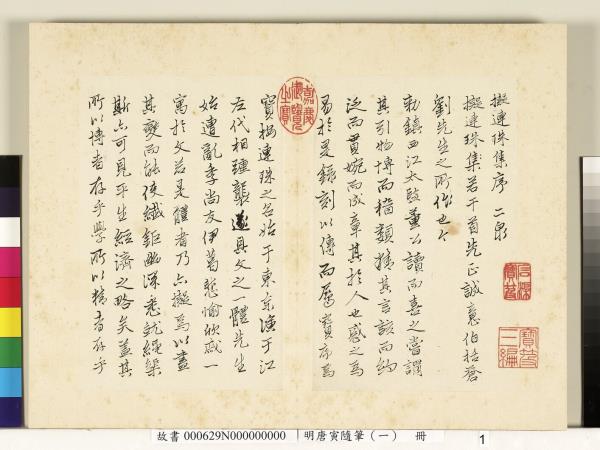 擬連珠集序 二泉
擬連珠集若干首先正誠意伯括蒼
劉先生之所作也今
勅鎮西江太監董公讀而喜之嘗謂
其引物博而稽類精其言該而約
泛而貫婉而成章其於人也感之為
易於是錄刻以傳而屬寶序焉
寶按連珠之名始于東京演于江
左代相踵襲遂具文之一體先生
始遭亂季尚友伊葛悲愉欣慼一
寓於文若是體者乃亦擬焉以盡
其變而能使纖鉅幽深悉就繩榘
斯亦可見平生經濟之略矣蓋其
所以博者存乎學所以精者存乎
嘉慶御覽之寶
石渠寶笈
寶笈三編
故書 000629N000000000 明唐寅隨筆(一) 冊 1